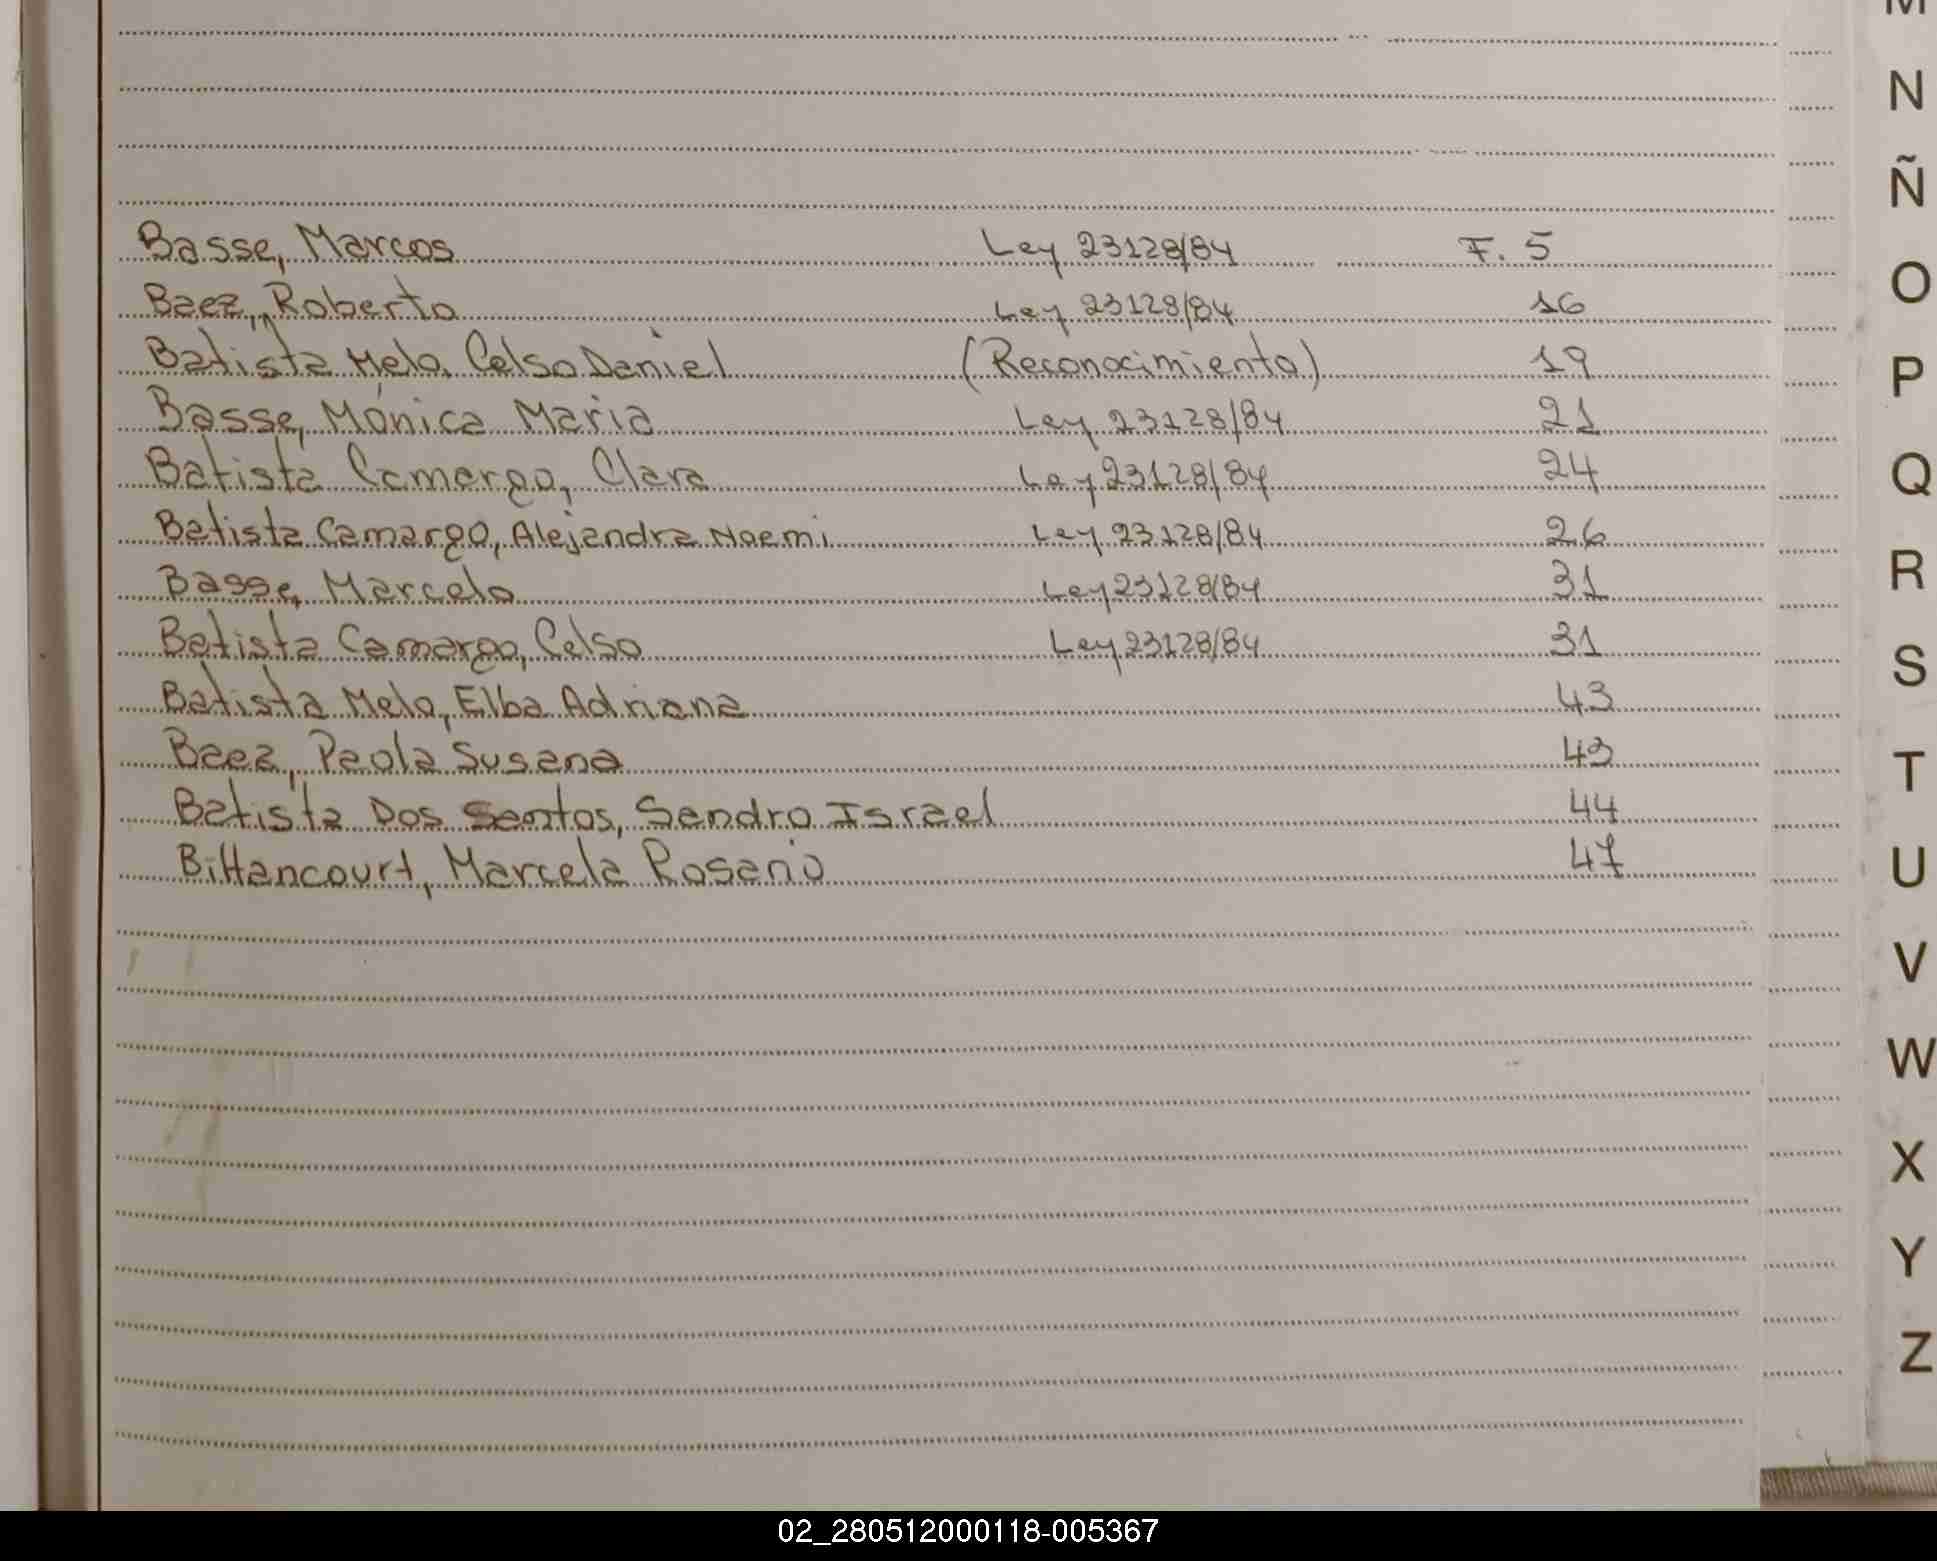 M
N
Ñ
Basse, Marcos Ley 23128/84 F. 5
O
Baez, Roberto Ley 23128/84 16
Batista Melo, Celso Daniel (Reconocimiento) 19
P
Basse, Mónica Maria Ley 23128/84 21
Batista Camargo, Clara Ley 23128/84 24
Q
Batista Camargo, Alejandra Noemi Ley 23128/84 26
R
Basse, Marcelo Ley 23128/84 31
Batista Camargo, Celso Ley 23128/84 31
S
Batista Melo, Elba Adriana 43
Baez, Paola Susana 43
T
Batista Dos Santos, Sandro Israel 44
Bittancourt, Marcela Rosario 47
U
V
W
X
Y
Z
02_280512000118-005367